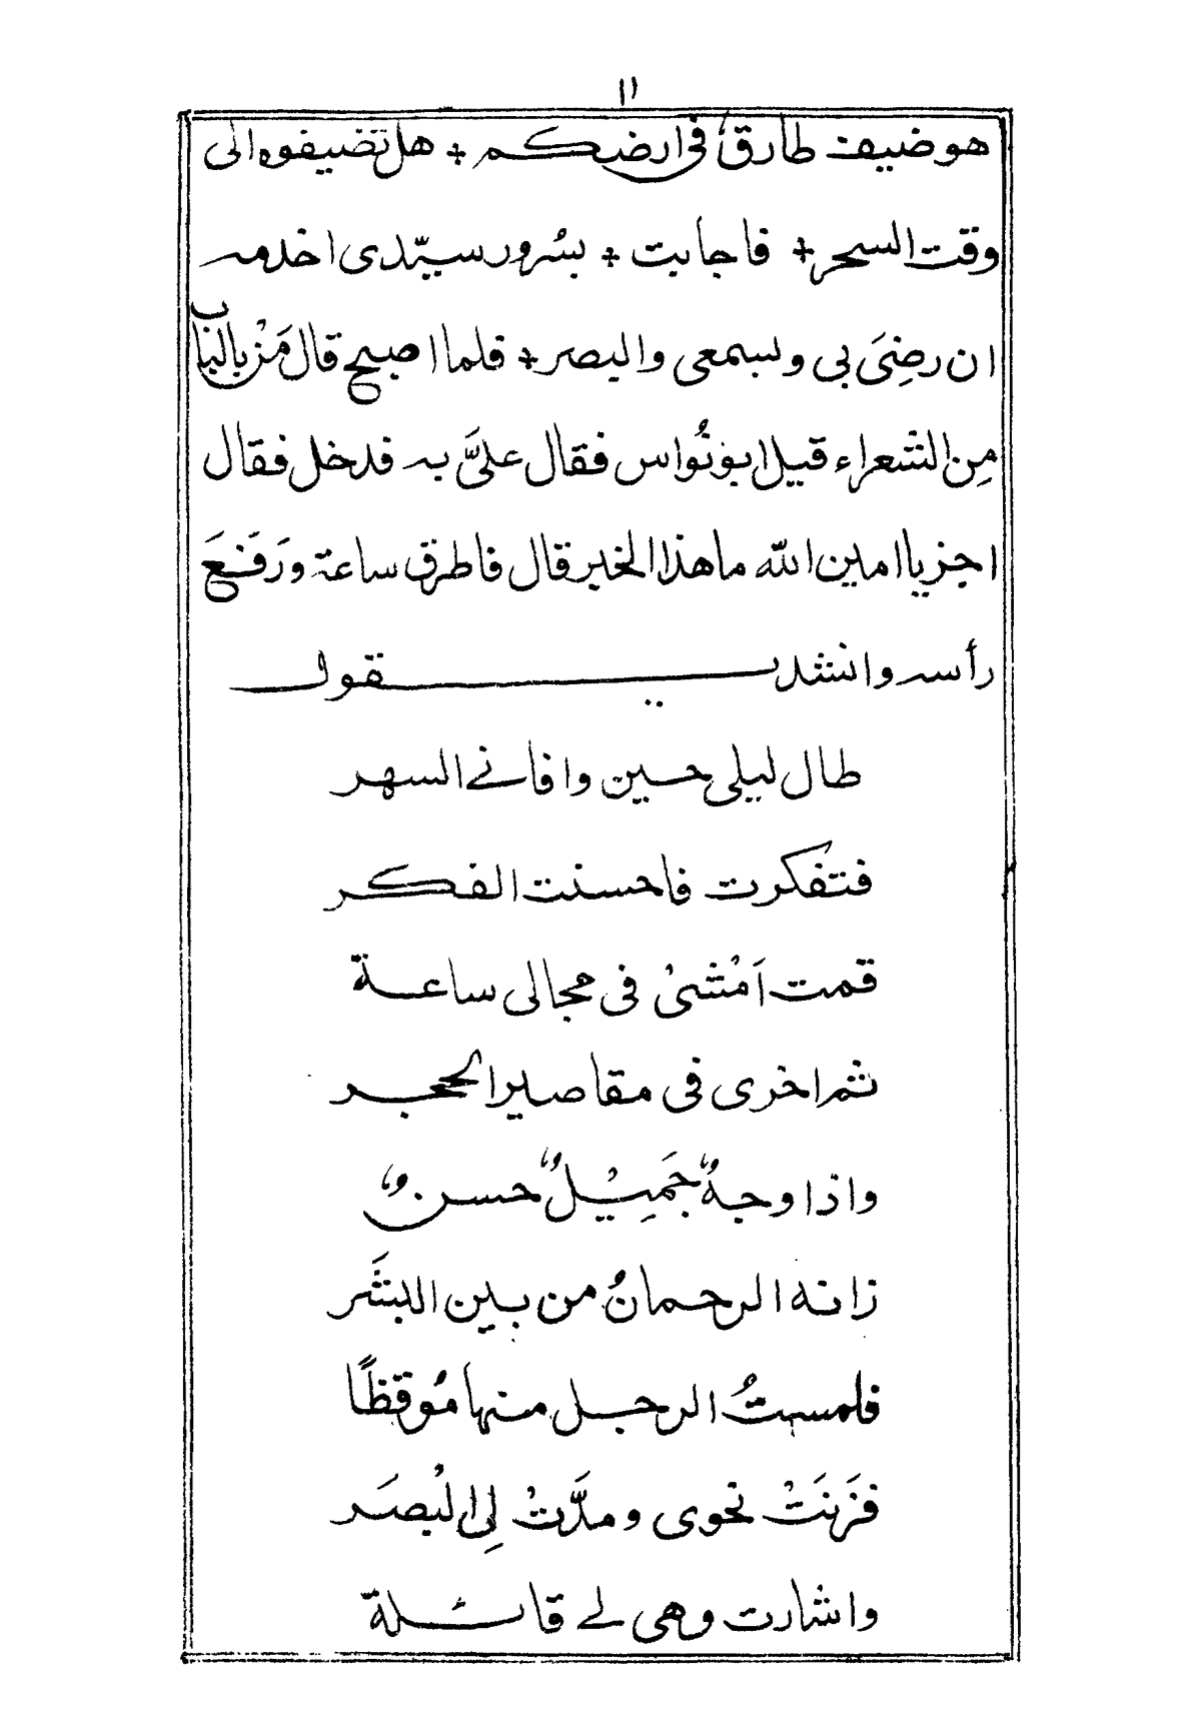 ١١
هو ضيف طارقٌ فى ارضكم + هل تضيفوه الى
وقت السحر + فاجابت + بسُرور سيّدى اخدمه
ان رضِىَ بى وبسمعى والبصر + فلما اصبح قال مَنْ بالباب
مِن الشعراء قيل ابو نُواس فقال علىَّ به فدخل فقال
اجز يا امين الله ما هذا الخبر قال فاطرق ساعة ورَفَعَ
رأسه وانشد يقول
طال ليلى حين وافانے السهر
فتفكرت فاحسنت الفكر
قمت اَمْشىْ فى مجالى ساعة
ثم اخرى فى مقاصير الحجر
واذا وجهٌ جَمِيْلٌ حسنٌ
زانه الرحمانُ من بين البشَر
فلمستُ الرجل منها مُوقظًا
فرَنَتْ نحوى ومدَّتْ لِى الْبصَر
واشارت وهى لے قائلة